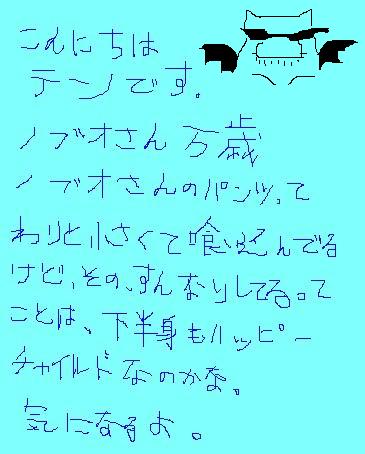 こんにちは
テンノです。
ノブオさん万歳
ノブオさんのパンツって
わりと小さくて喰い込んでる
けど、その、すんなりしてるって
ことは、下半身もハッピー
チャイルドなのかな。
気になるよ。